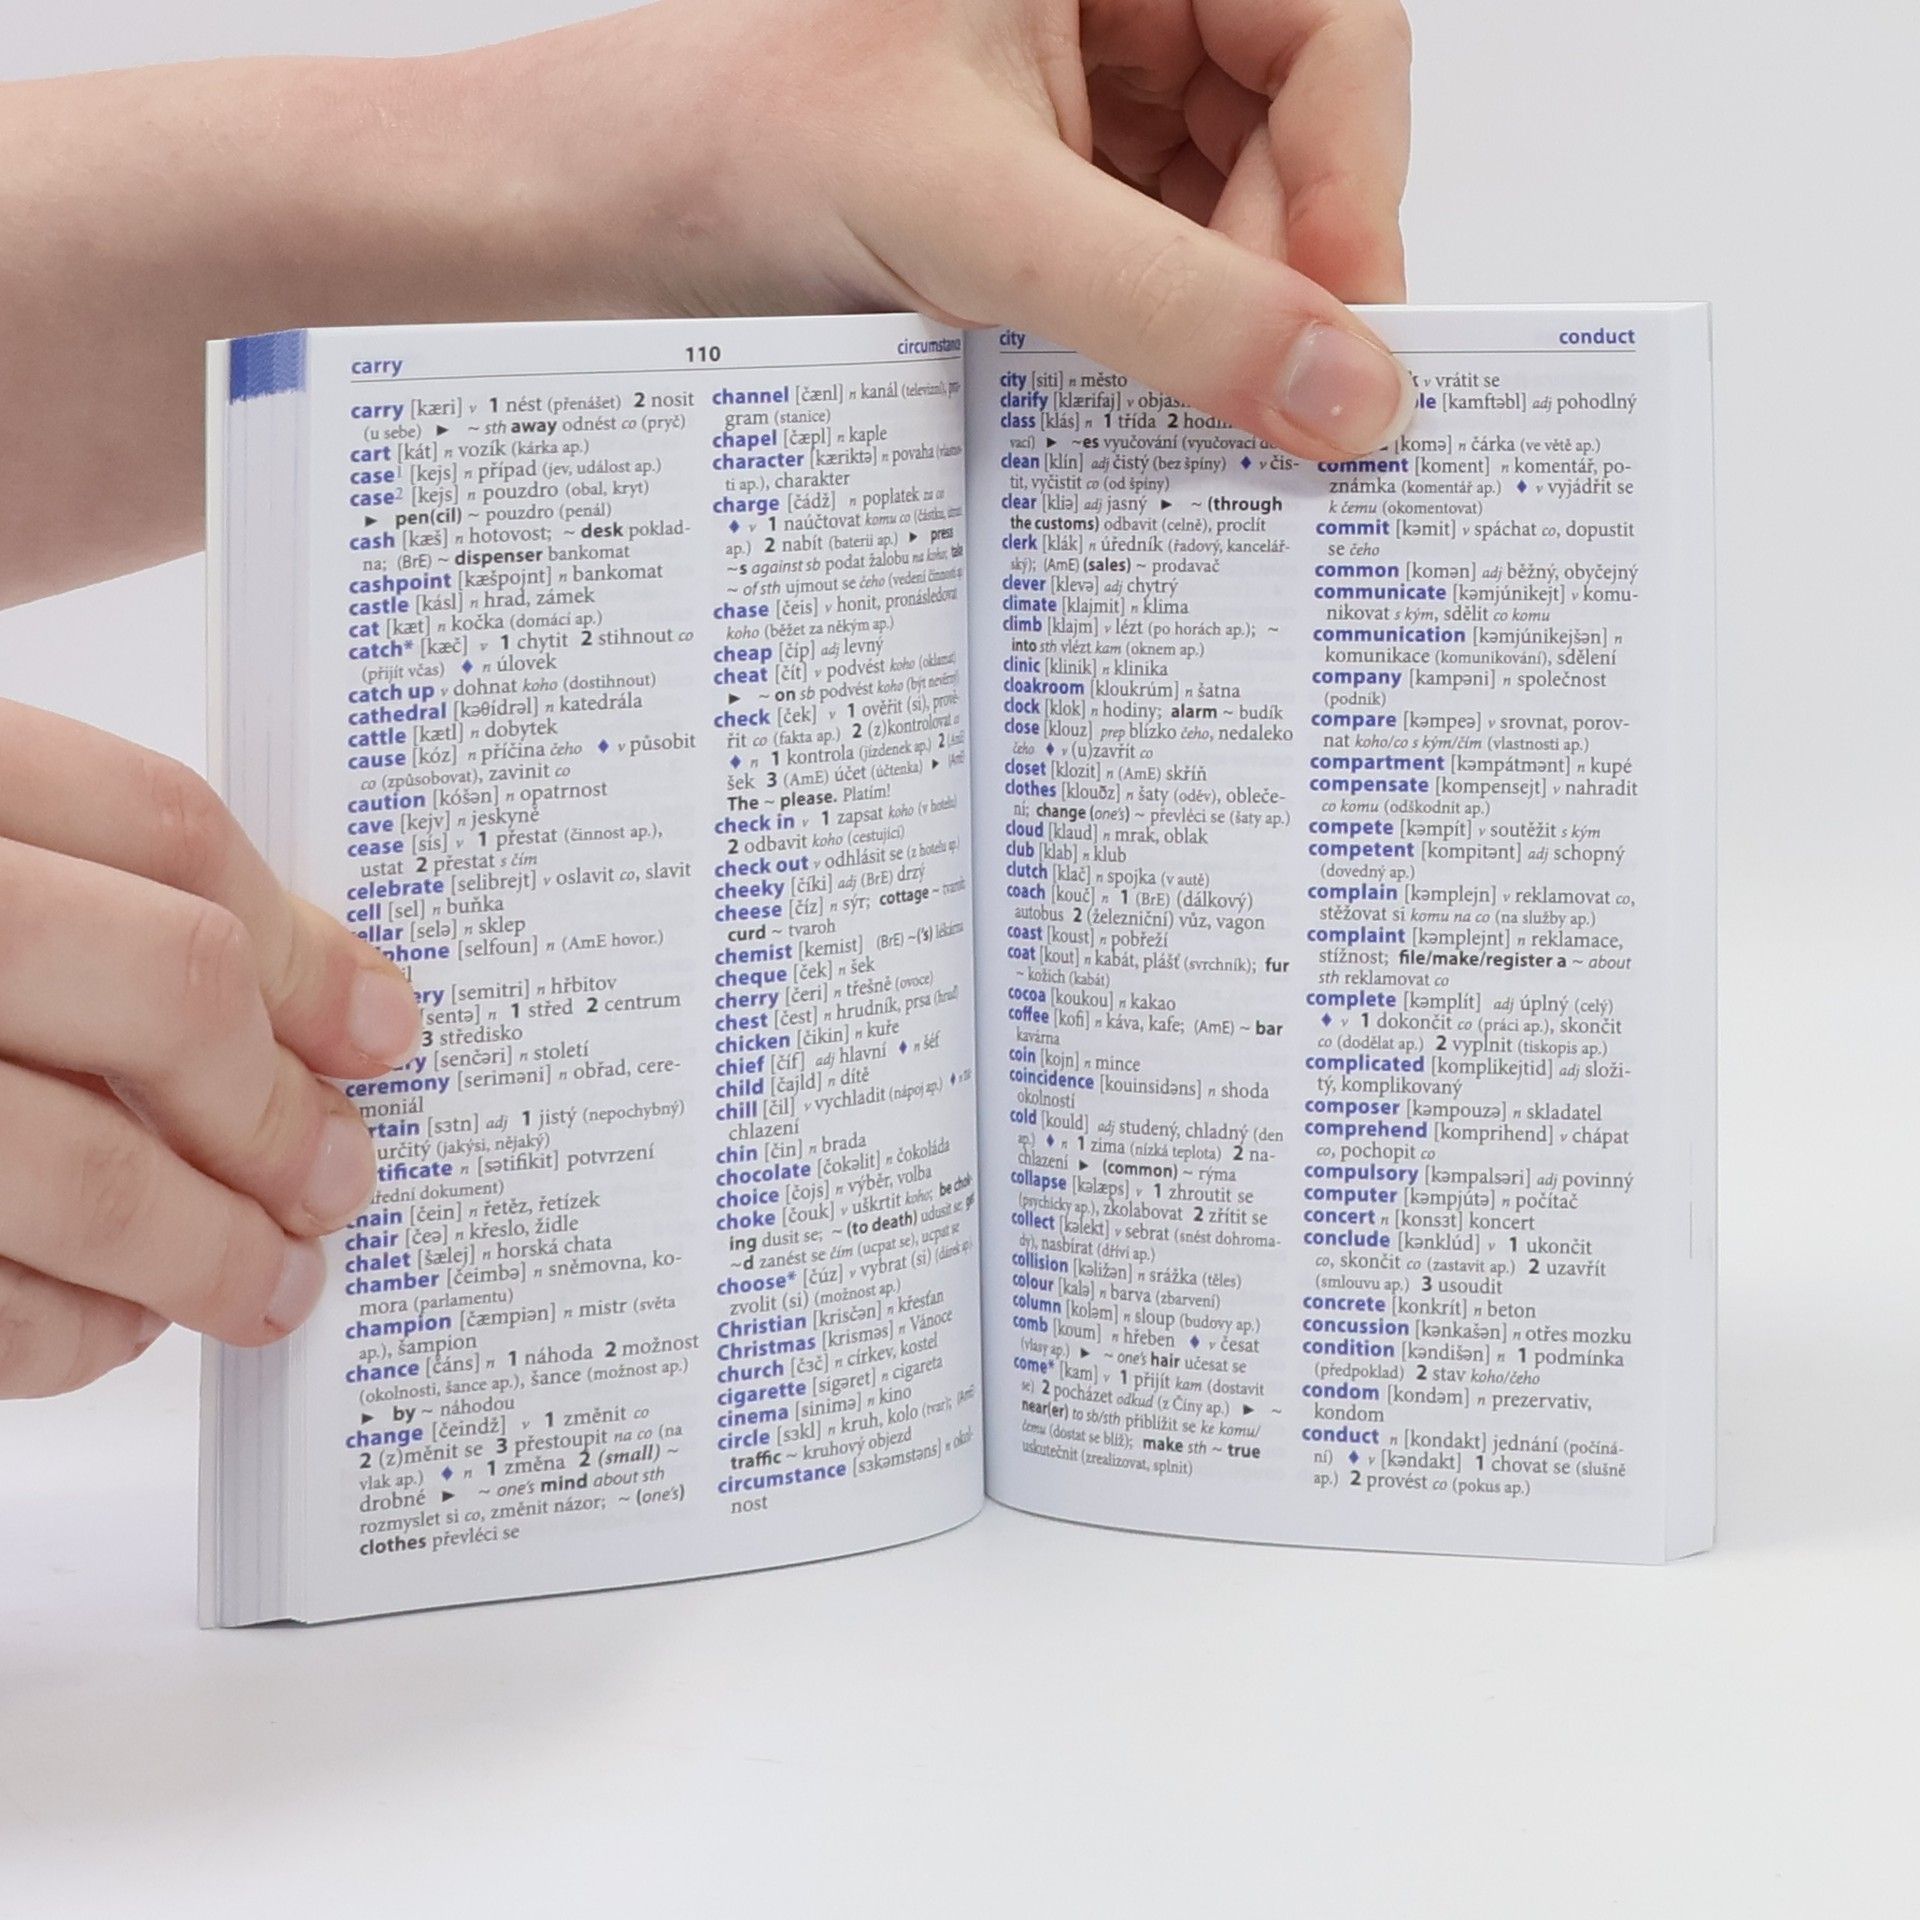 carry
110
circumstance
carry [kæri] v 1 nést (přenášet) 2 nosit
(u sebe) ► ~ sth away odnést co (pryč)
cart [kát] n vozík (kárka ap.)
case¹ [kejs] n případ (jev, událost ap.)
case² [kejs] n pouzdro (obal, kryt)
► pen(cil) ~ pouzdro (penál)
cash [kæš] n hotovost; ~ desk poklad-
na; (BrE) ~ dispenser bankomat
cashpoint [kæšpojnt] n bankomat
castle [kásl] n hrad, zámek
cat [kæt] n kočka (domácí ap.)
catch* [kæč] v 1 chytit 2 stihnout co
(přijít včas) ♦ n úlovek
catch up v dohnat koho (dostihnout)
cathedral [kəθídrəl] n katedrála
cattle [kætl] n dobytek
cause [kóz] n příčina čeho ♦ v působit
co (způsobovat), zavinit co
caution [kóšən] n opatrnost
cave [kejv] n jeskyně
cease [sís] v 1 přestat (činnost ap.),
ustat 2 přestat s čím
celebrate [selibrejt] v oslavit co, slavit
cell [sel] n buňka
ellar [selə] n sklep
phone [selfoun] n (AmE hovor.)
il
ery [semitri] n hřbitov
[sentə] n 1 střed 2 centrum
3 středisko
ry [senčəri] n století
ceremony [seriməni] n obřad, cere-
moniál
rtain [sɜtn] adj 1 jistý (nepochybný)
určitý (jakýsi, nějaký)
tificate n [sətifikit] potvrzení
řední dokument)
hain [čein] n řetěz, řetízek
chair [čeə] n křeslo, židle
chalet [šælej] n horská chata
chamber [čeimbə] n sněmovna, ko-
mora (parlamentu)
champion [čæmpiən] n mistr (světa
ap.), šampion
chance [čáns] n 1 náhoda 2 možnost
(okolnosti, šance ap.), šance (možnost ap.)
► by ~ náhodou
change [čeindž] v 1 změnit co
2 (z)měnit se 3 přestoupit na co (na
vlak ap.) ♦ n 1 změna 2 (small) ~
drobné ► ~ one's mind about sth
rozmyslet si co, změnit názor; ~ (one's)
clothes převléci se
channel [čænl] n kanál (televizní), pro-
gram (stanice)
chapel [čæpl] n kaple
character [kæriktə] n povaha (vlastnos-
ti ap.), charakter
charge [čádž] n poplatek za co
♦ v 1 naúčtovat komu co (částku, útratu
ap.) 2 nabít (baterii ap.) ► press
~s against sb podat žalobu na koho; take
~ of sth ujmout se čeho (vedení činnosti ap.)
chase [čeis] v honit, pronásledovat
koho (běžet za někým ap.)
cheap [číp] adj levný
cheat [čít] v podvést koho (oklamat)
► ~ on sb podvést koho (být nevěrný)
check [ček] v 1 ověřit (si), prově-
řit co (fakta ap.) 2 (z)kontrolovat co
♦ n 1 kontrola (jízdenek ap.) 2 (AmE)
šek 3 (AmE) účet (účtenka) ► (AmE)
The ~ please. Platím!
check in v 1 zapsat koho (v hotelu)
2 odbavit koho (cestující)
check out v odhlásit se (z hotelu ap.)
cheeky [číki] adj (BrE) drzý
cheese [číz] n sýr; cottage ~ tvaroh
curd ~ tvaroh
chemist [kemist] (BrE) ~('s) lékárna
cheque [ček] n šek
cherry [čeri] n třešně (ovoce)
chest [čest] n hrudník, prsa (hruď)
chicken [čikin] n kuře
chief [číf] adj hlavní ♦ n šéf
child [čajld] n dítě
chill [čil] v vychladit (nápoj ap.) ♦ n
chlazení
chin [čin] n brada
chocolate [čokəlit] n čokoláda
choice [čojs] n výběr, volba
choke [čouk] v uškrtit koho; be chok-
ing dusit se; ~ (to death) udusit se; get
~d zanést se čím (ucpat se), ucpat se
choose* [čúz] v vybrat (si) (dárek ap.),
zvolit (si) (možnost ap.)
Christian [krisčən] n křesťan
Christmas [krisməs] n Vánoce
church [čɜč] n církev, kostel
cigarette [sigəret] n cigareta
cinema [sinimə] n kino
circle [sɜkl] n kruh, kolo (tvar); (AmE)
traffic ~ kruhový objezd
circumstance [sɜkəmstəns] n okol-
nost
city
conduct
city [siti] n město
clarify [klærifaj] v objas
class [klás] n 1 třída 2 hodi
vací) ► ~es vyučování (vyučovací
clean [klín] adj čistý (bez špíny) ♦ v čis-
tit, vyčistit co (od špíny)
clear [kliə] adj jasný ► ~ (through
the customs) odbavit (celně), proclít
clerk [klák] n úředník (řadový, kancelář-
ský); (AmE) (sales) ~ prodavač
clever [klevə] adj chytrý
climate [klajmit] n klima
climb [klajm] v lézt (po horách ap.); ~
into sth vlézt kam (oknem ap.)
clinic [klinik] n klinika
cloakroom [kloukrúm] n šatna
clock [klok] n hodiny; alarm ~ budík
close [klouz] prep blízko čeho, nedaleko
čeho ♦ v (u)zavřít co
closet [klozit] n (AmE) skříň
clothes [klouðz] n šaty (oděv), obleče-
ní; change (one's) ~ převléci se (šaty ap.)
cloud [klaud] n mrak, oblak
club [klab] n klub
clutch [klač] n spojka (v autě)
coach [kouč] n 1 (BrE) (dálkový)
autobus 2 (železniční) vůz, vagon
coast [koust] n pobřeží
coat [kout] n kabát, plášť (svrchník); fur
~ kožich (kabát)
cocoa [koukou] n kakao
coffee [kofi] n káva, kafe; (AmE) ~ bar
kavárna
coin [kojn] n mince
coincidence [kouinsidəns] n shoda
okolností
cold [kould] adj studený, chladný (den
ap.) ♦ n 1 zima (nízká teplota) 2 na-
chlazení ► (common) ~ rýma
collapse [kəlæps] v 1 zhroutit se
(psychicky ap.), zkolabovat 2 zřítit se
collect [kəlekt] v sebrat (snést dohroma-
dy), nasbírat (dříví ap.)
collision [kəližən] n srážka (těles)
colour [kalə] n barva (zbarvení)
column [koləm] n sloup (budovy ap.)
comb [koum] n hřeben ♦ v česat
(vlasy ap.) ► ~ one's hair učesat se
come* [kam] v 1 přijít kam (dostavit
se) 2 pocházet odkud (z Číny ap.) ► ~
near(er) to sb/sth přiblížit se ke komu/
čemu (dostat se blíž); make sth ~ true
uskutečnit (zrealizovat, splnit)
k v vrátit se
le [kamftəbl] adj pohodlný
[komə] n čárka (ve větě ap.)
comment [koment] n komentář, po-
známka (komentář ap.) ♦ v vyjádřit se
k čemu (okomentovat)
commit [kəmit] v spáchat co, dopustit
se čeho
common [komən] adj běžný, obyčejný
communicate [kəmjúnikejt] v komu-
nikovat s kým, sdělit co komu
communication [kəmjúnikejšən] n
komunikace (komunikování), sdělení
company [kampəni] n společnost
(podnik)
compare [kəmpeə] v srovnat, porov-
nat koho/co s kým/čím (vlastnosti ap.)
compartment [kəmpátmənt] n kupé
compensate [kompensejt] v nahradit
co komu (odškodnit ap.)
compete [kəmpít] v soutěžit s kým
competent [kompitənt] adj schopný
(dovedný ap.)
complain [kəmplejn] v reklamovat co,
stěžovat si komu na co (na služby ap.)
complaint [kəmplejnt] n reklamace,
stížnost; file/make/register a ~ about
sth reklamovat co
complete [kəmplít] adj úplný (celý)
♦ v 1 dokončit co (práci ap.), skončit
co (dodělat ap.) 2 vyplnit (tiskopis ap.)
complicated [komplikejtid] adj složi-
tý, komplikovaný
composer [kəmpouzə] n skladatel
comprehend [komprihend] v chápat
co, pochopit co
compulsory [kəmpalsəri] adj povinný
computer [kəmpjútə] n počítač
concert n [konsɜt] koncert
conclude [kənklúd] v 1 ukončit
co, skončit co (zastavit ap.) 2 uzavřít
(smlouvu ap.) 3 usoudit
concrete [konkrít] n beton
concussion [kənkašən] n otřes mozku
condition [kəndišən] n 1 podmínka
(předpoklad) 2 stav koho/čeho
condom [kondəm] n prezervativ,
kondom
conduct n [kondakt] jednání (počíná-
ní) ♦ v [kəndakt] 1 chovat se (slušně
ap.) 2 provést co (pokus ap.)